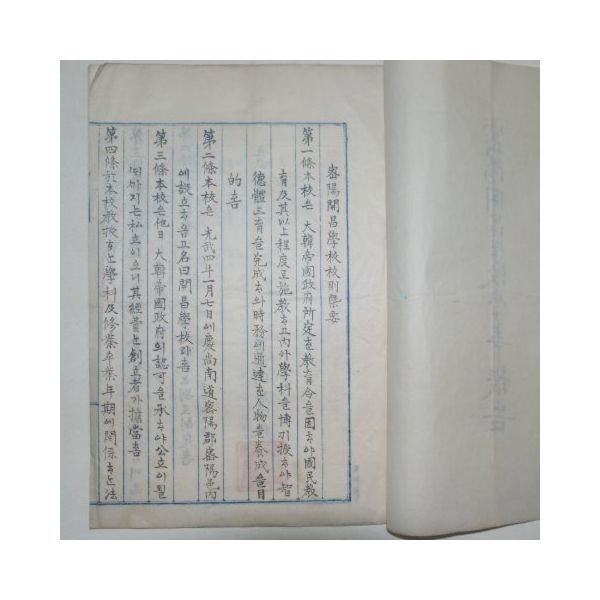 密陽開昌學校校則槩要
第一條本校은 大韓帝國政府所定한敎育令을因하야國民敎
育及其以上程度로施敎하고內外學科을博히撥하야智
德體三育을完成하와時務에通達한人物을養成을目
的홈
第二條本校은 光武四年一月七日에慶尚南道密陽郡密陽邑內
에設立하옵고名曰開昌學校라홈
第三條本校은他日 大韓帝國政府의認可을承하야公立이될
때까지는私立이오며其經費는創立者가擔當홈
第四條於本校敎授하는學科及修業卒業年期에關係하는法